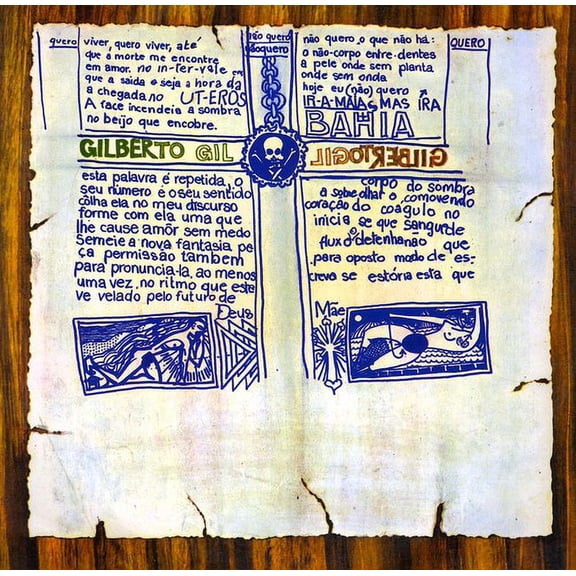 quero
viver, quero viver, até
que a morte me encontre
em amor. no in-ter-vale em
que a saída seja a hora da
a chegada no UT-EROS
A face incendeia a sombra
no beijo que encobre.
não quero
não quero
não quero o que não há:
o não-corpo entre-dentes
a pele onde sem planta
onde sem onda
hoje eu (não) quero
IR-A-MAIAS MAS IRA
BAHIA
QUERO
GILBERTO GIL
GILBERTO GIL
esta palavra é repetida, o
seu número é o seu sentido
colha ela no meu discurso
forme com ela uma que
lhe cause amor sem medo
Semeie a nova fantasia pe
ça permissão também
para pronuncia-la, ao menos
uma vez, no ritmo que este
ve velado pelo futuro de
Deus
corpo da sombra
a sobre olhar o comovendo
coração do coagulo no
inicia se que sangue de
fluxo detenha não que
para oposto modo de es-
creva se estória esta que
Mãe